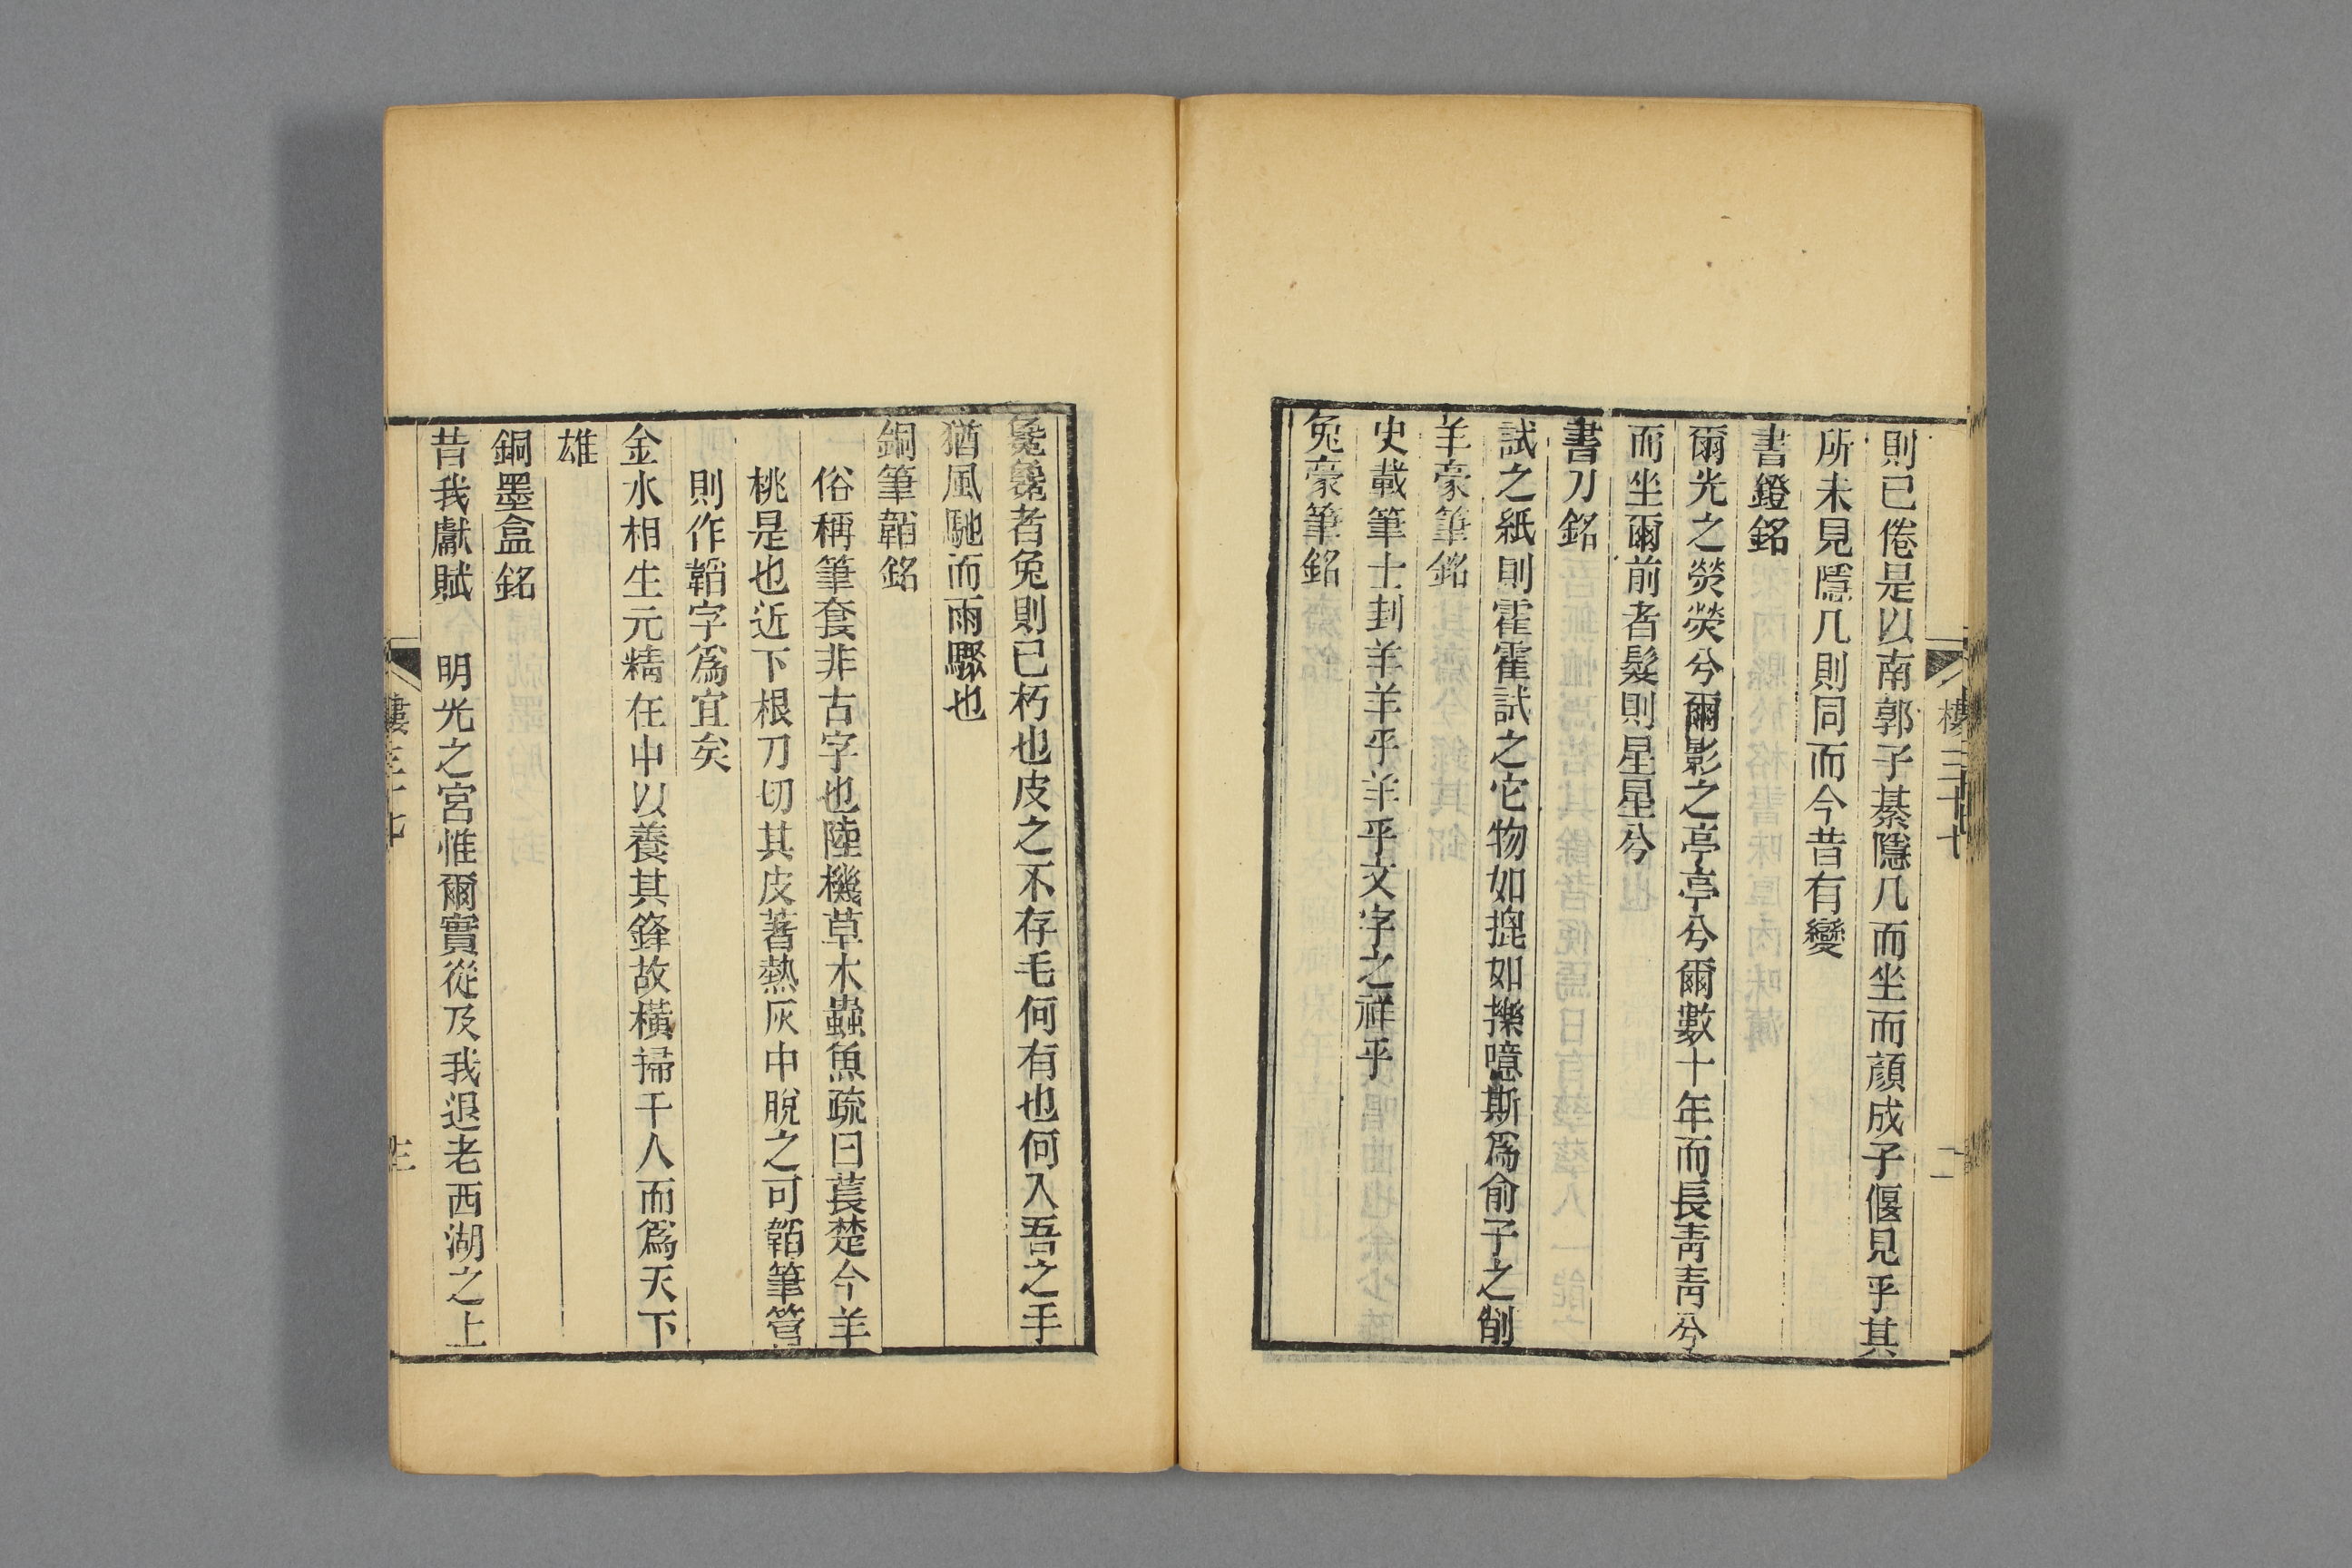 則已倦是以南郭子綦隱几而坐而顏成子偃見乎其
所未見隱几則同而今昔有變
書鐙銘
爾光之熒熒兮爾影之亭亭兮爾數十年而長青青兮
而坐爾前者髮則星星兮
書刀銘
試之紙則霍霍試之它物如㨢如擽噫斯爲俞子之削
羊豪筆銘
史載筆士刲羊羊乎羊乎文字之祥乎
兔豪筆銘
毚毚者兔則已朽也皮之不存毛何有也何入吾之手
猶風馳而雨驟也
銅筆韜銘
俗稱筆套非古字也陸機草木蟲魚疏曰萇楚今羊
桃是也近下根刀切其皮著熱灰中脫之可韜筆管
則作韜字爲宜矣
金水相生元精在中以養其鋒故橫掃千人而爲天下
雄
銅墨盒銘
昔我獻賦 明光之宮惟爾實從及我退老西湖之上